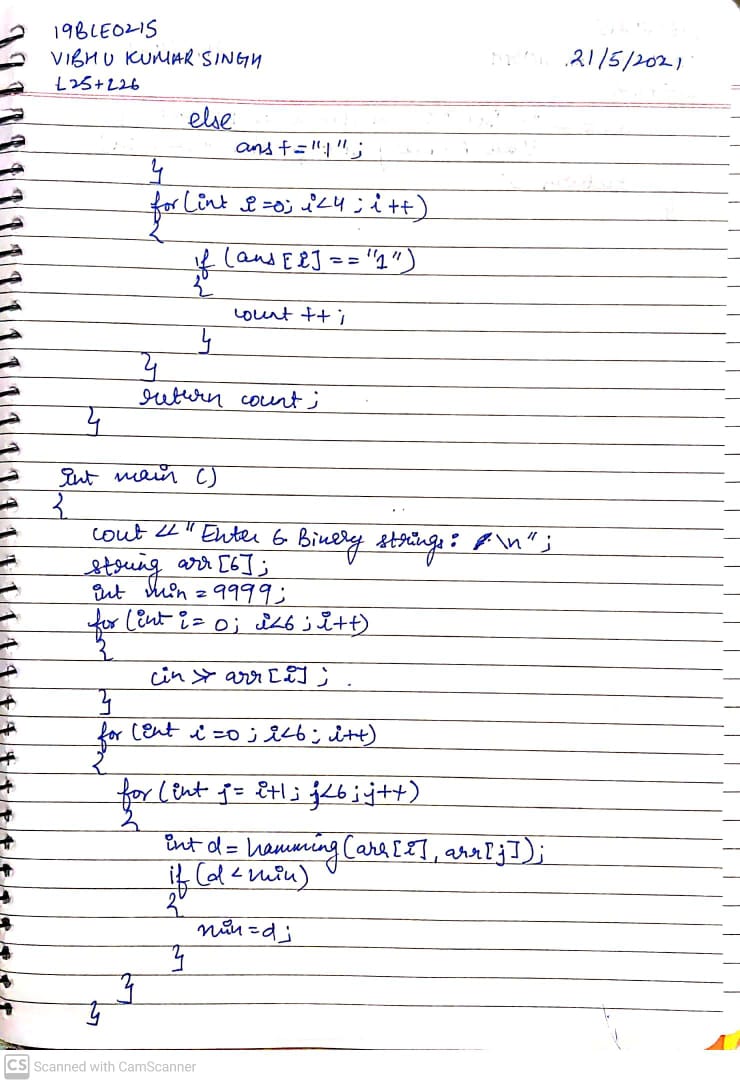 19BLE0215
VIBHU KUMAR SINGH 21/5/2021
L25+L26
else
ans += "1";
}
for (int i=0; i<4; i++)
{
if (ans[i] == "1")
{
count ++;
}
}
return count;
}
int main ()
{
cout << "Enter 6 Binery strings: \n";
string arr [6];
int min = 9999;
for (int i= 0; i<6; i++)
{
cin >> arr [i];
}
for (int i =0; i<6; i++)
{
for (int j= i+1; j<6; j++)
{
int d = hamming (arr[i], arr[j]);
if (d < min)
{
min = d;
}
}
}
CS Scanned with CamScanner